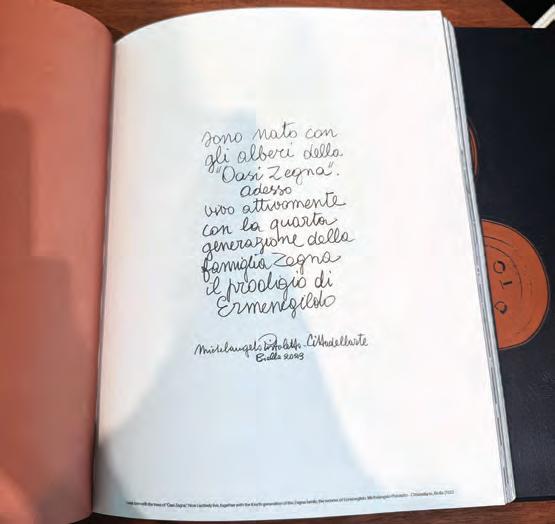 sono nato con
gli alberi della
"Oasi Zegna".
adesso
vivo attivamente
con la quarta
generazione della
famiglia Zegna
il prodigio di
Ermenegildo
Michelangelo Pistoletto - Cittadellarte
Biella 2023
I was born with the trees of "Oasi Zegna." Now I actively live, together with the fourth generation of the Zegna family, the wonder of Ermenegildo. Michelangelo Pistoletto - Cittadellarte, Biella 2023